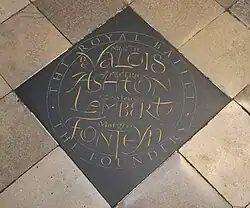 THE ROYAL BALLET
Ninette de
VALOIS
Frederick
ASHTON
Constant
LAMBERT
Margot
FONTEYN
THE FOUNDERS